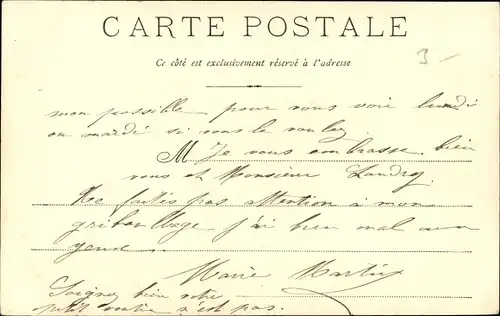 CARTE POSTALE
Ce côté est exclusivement réservé à l'adresse
3
mon possible pour vous voir lundi
ou mardi si vous le voulez
M Je vous embrasse bien
vous et Monsieur Landry.
Ne faites pas attention à mon
gribouillage j'ai bien mal aux
yeux
Marie Martin
Soignez bien votre
petit ventre n'est pas.